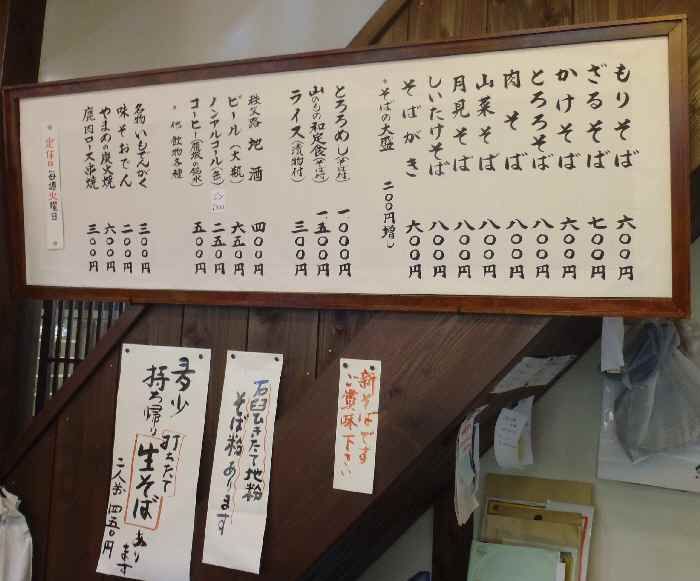 もりそば 六〇〇円
ざるそば 七〇〇円
かけそば 六〇〇円
とろろそば 八〇〇円
肉そば 八〇〇円
山菜そば 八〇〇円
月見そば 八〇〇円
しいたけそば 八〇〇円
そばがき 六〇〇円
・そばの大盛 二〇〇円増し
とろろめし(そば付) 一、〇〇〇円
山のもの和定食(そば付) 一、五〇〇円
ライス(漬物付) 三〇〇円
秩父路 地酒 四〇〇円
ビール(大瓶) 六五〇円
ノンアルコール(缶) 二五〇円
コーヒー(龍城の銘水) 五〇〇円
・他飲物各種
名物いもでんがく 三〇〇円
味そおでん 二〇〇円
やまめの炭火焼 六〇〇円
鹿肉ロース串焼 三〇〇円
・定休日 毎週火曜日
新そばです
ご賞味下さい
石臼ひきたて地粉
そば粉あります
多少
持ち帰り
打ちたて
生そば
あります
二人前 四五〇円